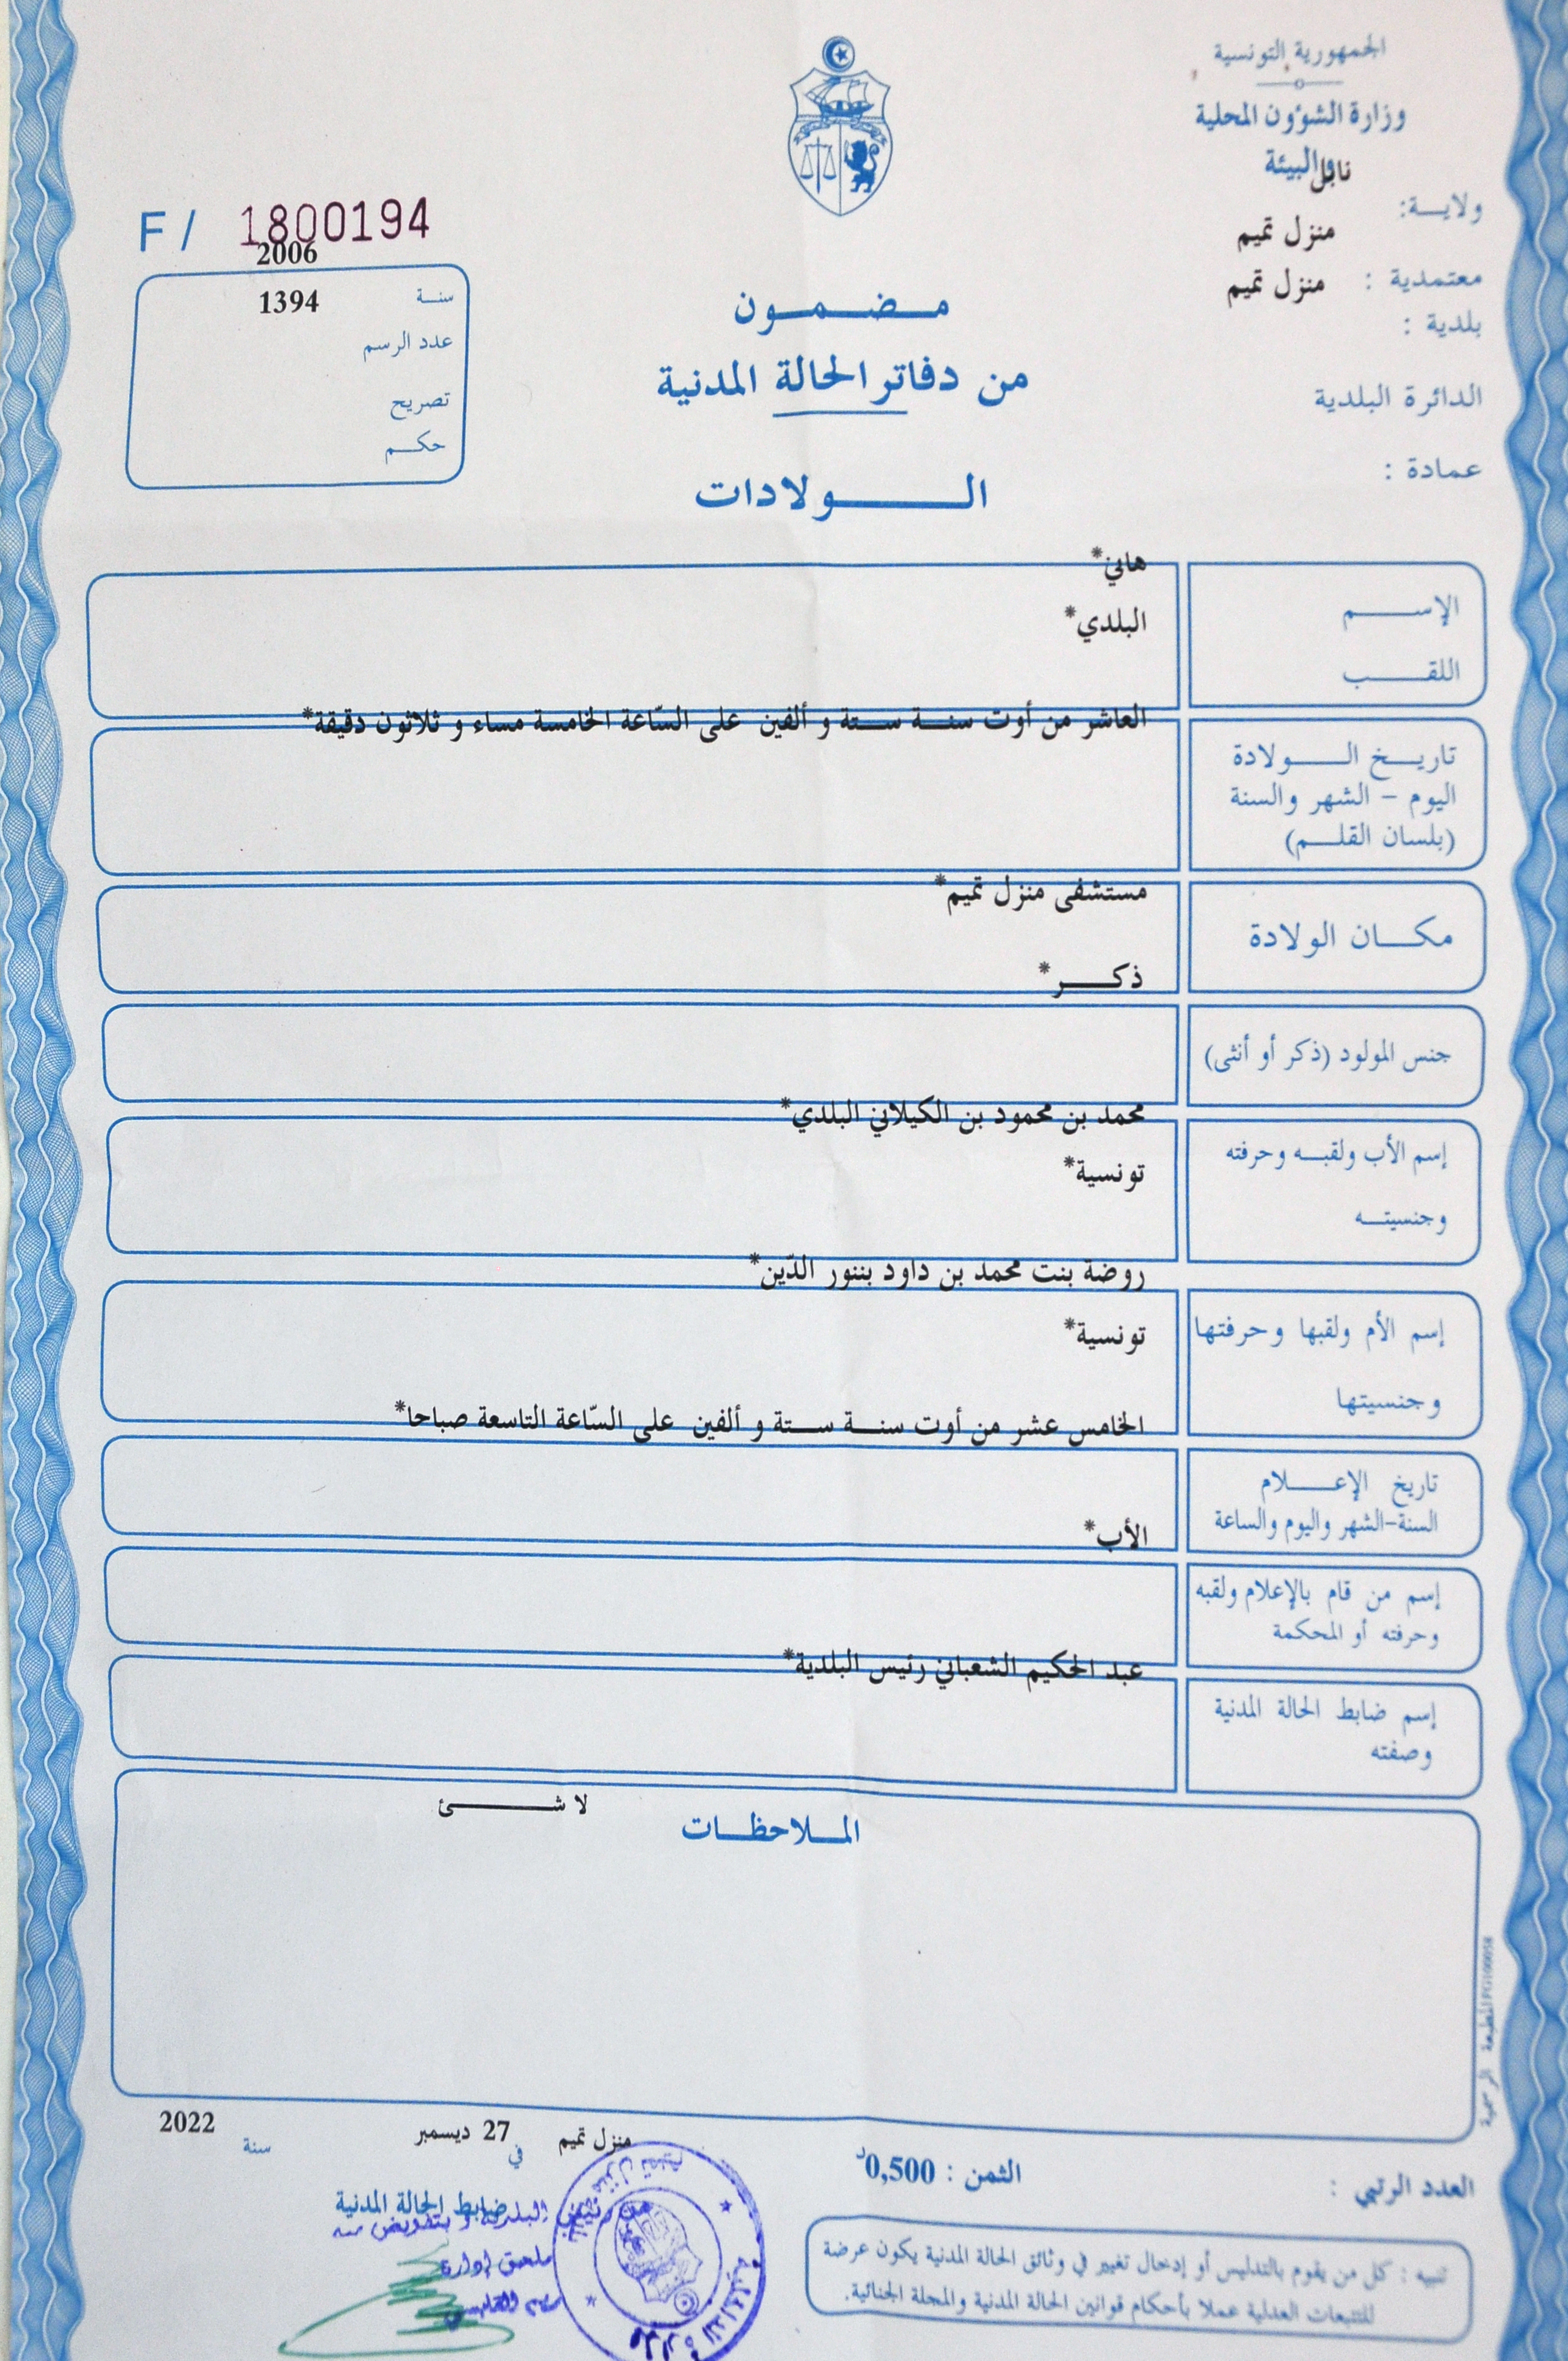 الجمهورية التونسية
وزارة الشؤون المحلية
والبيئة
ولايـــة: نابل
معتمدية : منزل تميم
بلدية : منزل تميم
الدائرة البلدية
عمادة :
F / 1800194
سنـة 2006
عدد الرسم 1394
تصريح
حكـــم
مـــضـــمـــون
من دفاتر الحالة المدنية
الـــــولادات
الإســـــم هاني*
اللقـــــب البلدي*
تاريـــخ الـــــولادة
اليوم - الشهر والسنة
(بلسان القلـــم)
العاشر من أوت سنـــة ستـــة و ألفين على السّاعة الخامسة مساء و ثلاثون دقيقة*
مكـــان الولادة
مستشفى منزل تميم*
جنس المولود (ذكر أو أنثى)
ذكـــــر*
إسم الأب ولقبـــه وحرفته
وجنسيتـــه
محمد بن محمود بن الكيلاني البلدي*
تونسية*
إسم الأم ولقبها وحرفتها
وجنسيتها
روضة بنت محمد بن داود بننور الدّين*
تونسية*
تاريخ الإعـــــلام
السنة-الشهر واليوم والساعة
الخامس عشر من أوت سنـــة ستـــة و ألفين على السّاعة التاسعة صباحا*
إسم من قام بالإعلام ولقبه
وحرفته أو المحكمة
الأب*
إسم ضابط الحالة المدنية
وصفته
عبد الحكيم الشعباني رئيس البلدية*
المـــلاحظـــات
لا شـــــــئ
المطبعة الرسمية
منزل تميم في 27 ديسمبر سنة 2022
ضابط الحالة المدنية
عن رئيس البلدية و بتفويض منه
ملحق إدارة
العدد الرتبي :
الثمن : 0,500د
تنبيه : كل من يقوم بالتدليس أو إدخال تغيير في وثائق الحالة المدنية يكون عرضة
للتتبعات العدلية عملا بأحكام قوانين الحالة المدنية والمجلة الجنائية.